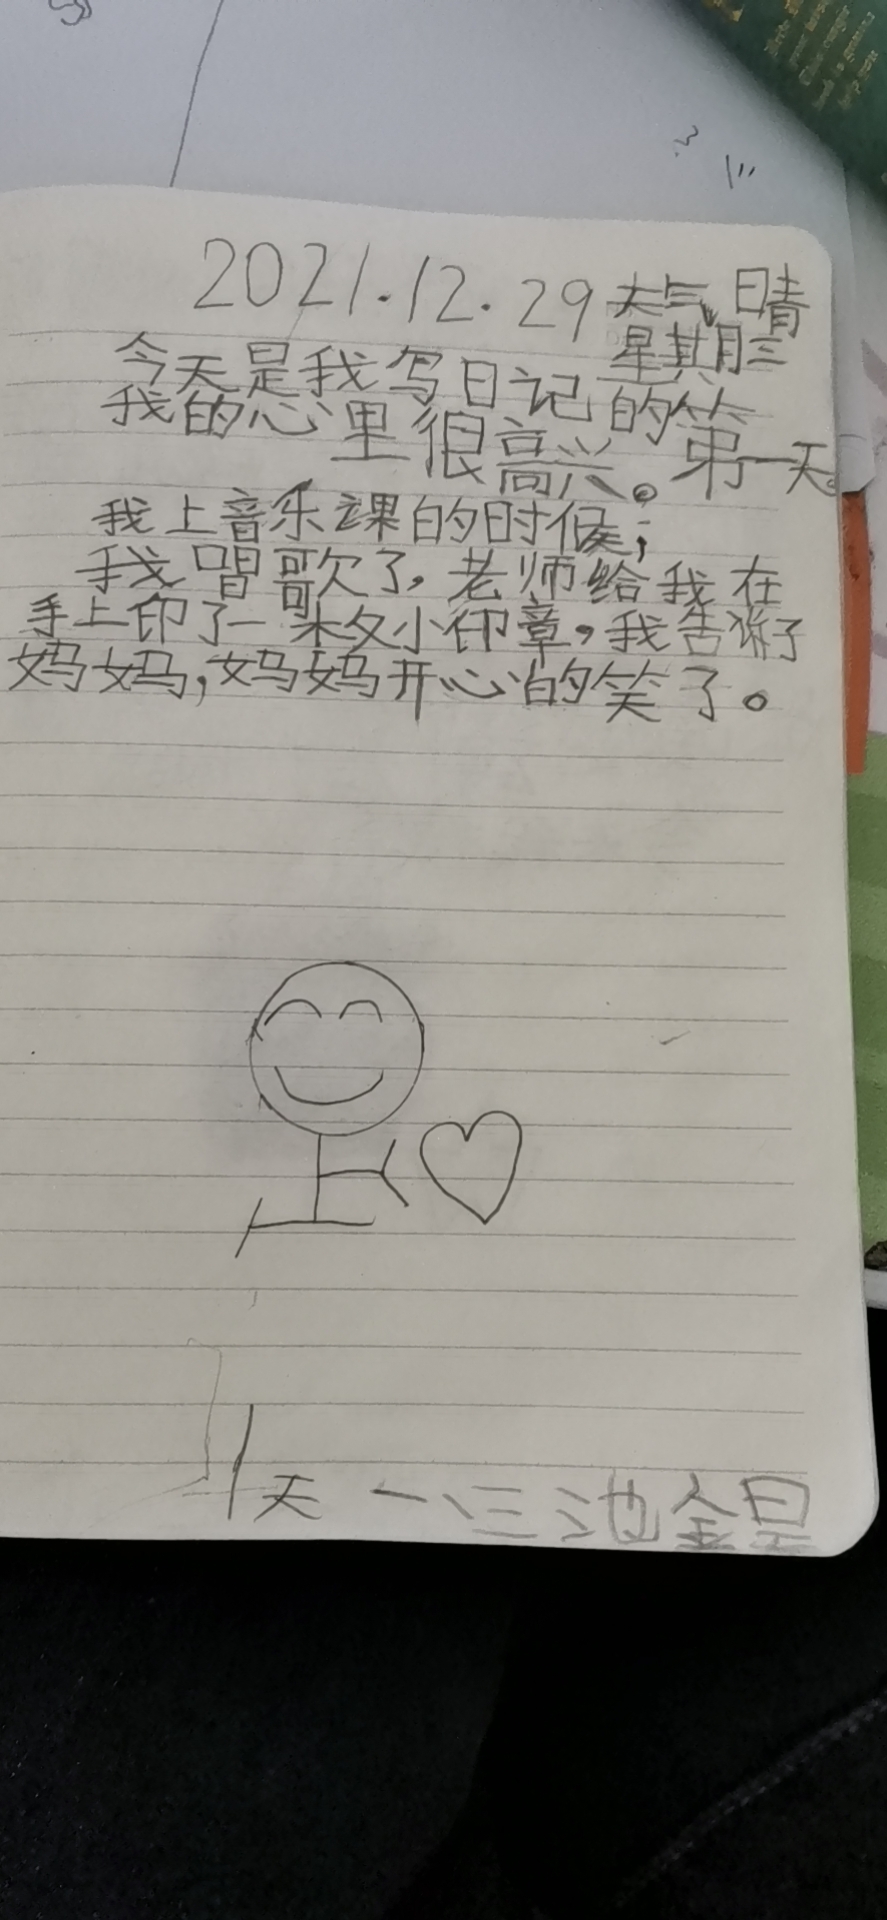 2021.12.29 天气晴
星期三
今天是我写日记的第一天。
我的心里很高兴。
我上音乐课的时候;
我唱歌了,老师给我在
手上印了一枚小印章,我告诉了
妈妈,妈妈开心的笑了。
1天 一 三池金呈